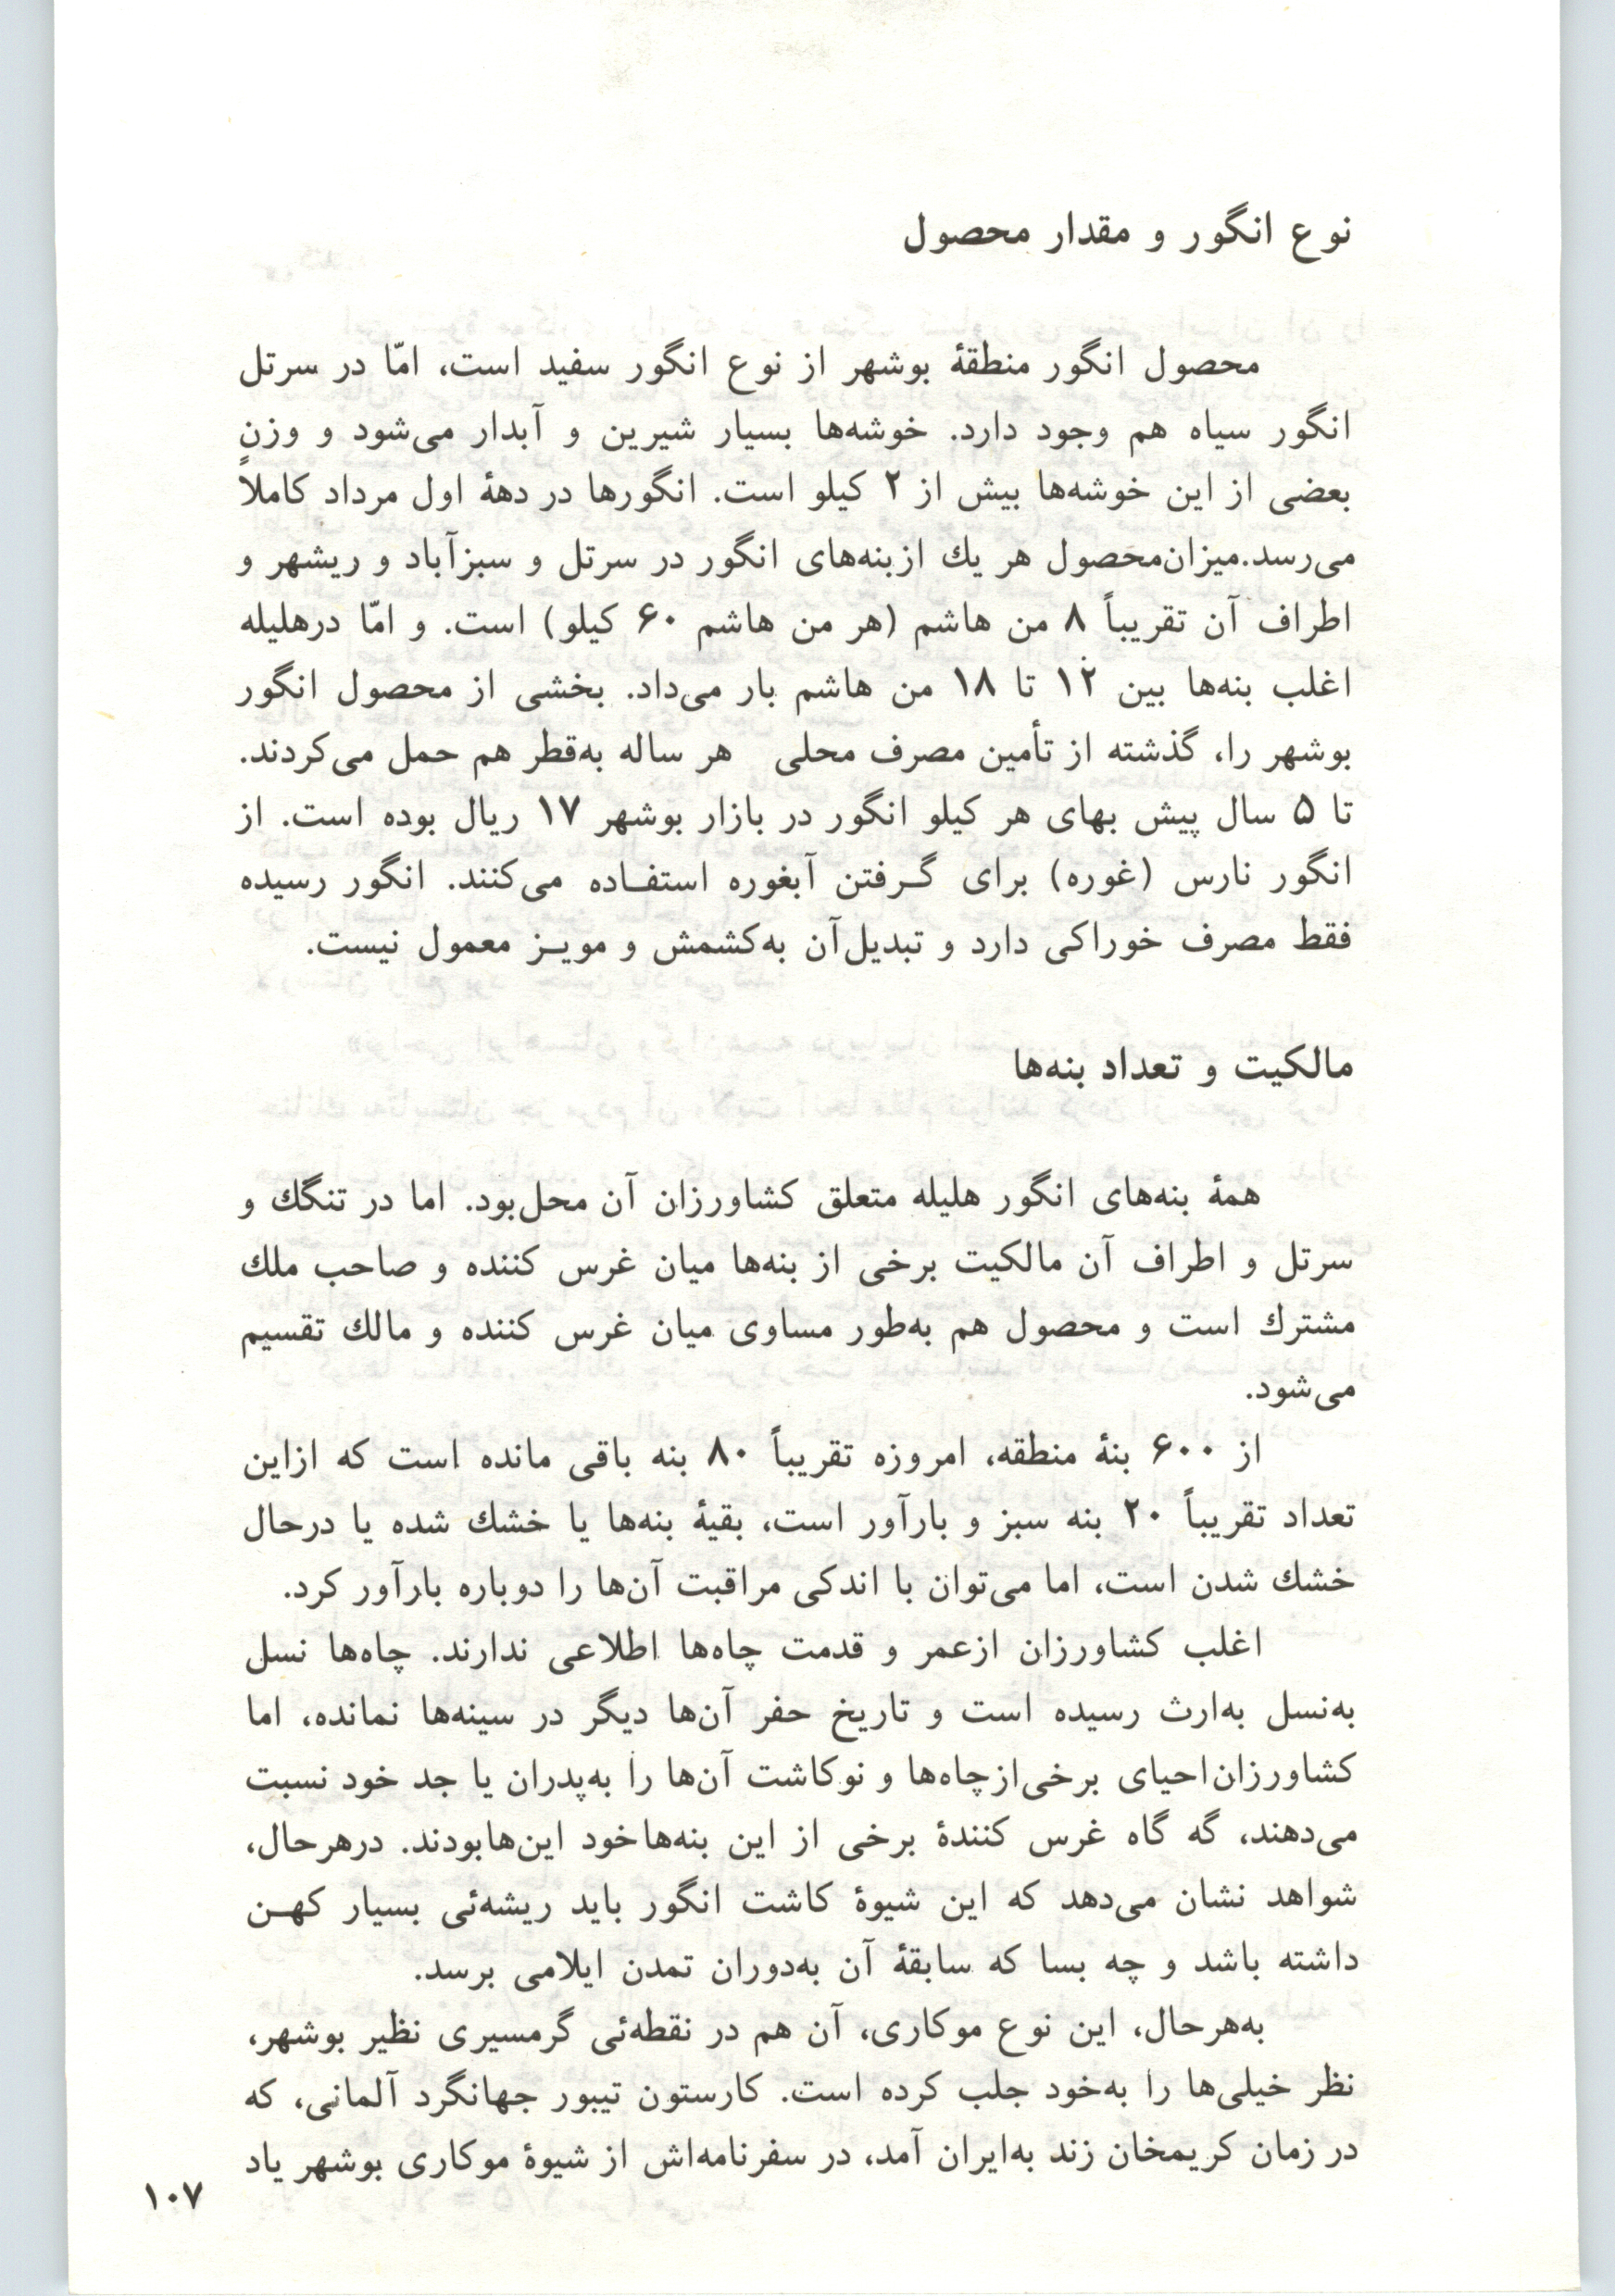 نوع انگور و مقدار محصول
محصول انگور منطقهٔ بوشهر از نوع انگور سفید است، امّا در سرتل
انگور سیاه هم وجود دارد. خوشه‌ها بسیار شیرین و آبدار می‌شود و وزنِ
بعضی از این خوشه‌ها بیش از ۲ کیلو است. انگورها در دههٔ اول مرداد کاملاً
می‌رسد. میزان محصول هر یك از بنه‌های انگور در سرتل و سبزآباد و ریشهر و
اطراف آن تقریباً ۸ من هاشم (هر من هاشم ۶۰ کیلو) است. و امّا درهلیله
اغلب بنه‌ها بین ۱۲ تا ۱۸ من هاشم بار می‌داد. بخشی از محصول انگور
بوشهر را، گذشته از تأمین مصرف محلی هر ساله به‌قطر هم حمل می‌کردند.
تا ۵ سال پیش بهای هر کیلو انگور در بازار بوشهر ۱۷ ریال بوده است. از
انگور نارس (غوره) برای گـرفتن آبغوره استفـاده می‌کنند. انگور رسیده
فقط مصرف خوراکی دارد و تبدیل آن به‌کشمش و مویـز معمول نیست.
مالکیت و تعداد بنه‌ها
همهٔ بنه‌های انگور هلیله متعلق کشاورزان آن محل‌بود. اما در تنگك و
سرتل و اطراف آن مالکیت برخی از بنه‌ها میان غرس کننده و صاحب ملك
مشترك است و محصول هم به‌طور مساوی میان غرس کننده و مالك تقسیم
می‌شود.
از ۶۰۰ بنهٔ منطقه، امروزه تقریباً ۸۰ بنه باقی مانده است که ازاین
تعداد تقریباً ۲۰ بنه سبز و بارآور است، بقیهٔ بنه‌ها یا خشك شده یا درحال
خشك شدن است، اما می‌توان با اندکی مراقبت آن‌ها را دوباره بارآور کرد.
اغلب کشاورزان ازعمر و قدمت چاه‌ها اطلاعی ندارند. چاه‌ها نسل
به‌نسل به‌ارث رسیده است و تاریخ حفر آن‌ها دیگر در سینه‌ها نمانده، اما
کشاورزان احیای برخی از چاه‌ها و نوکاشت آن‌ها را به‌پدران یا جد خود نسبت
می‌دهند، گه گاه غرس کنندهٔ برخی از این بنه‌ها خود این‌ها بودند. درهرحال،
شواهد نشان می‌دهد که این شیوهٔ کاشت انگور باید ریشه‌ئی بسیار کهـن
داشته باشد و چه بسا که سابقهٔ آن به‌دوران تمدن ایلامی برسد.
به‌هرحال، این نوع موکاری، آن هم در نقطه‌ئی گرمسیری نظیر بوشهر،
نظر خیلی‌ها را به‌خود جلب کرده است. کارستون تیبور جهانگرد آلمانی، که
در زمان کریمخان زند به‌ایران آمد، در سفرنامه‌اش از شیوهٔ موکاری بوشهر یاد
۱۰۷